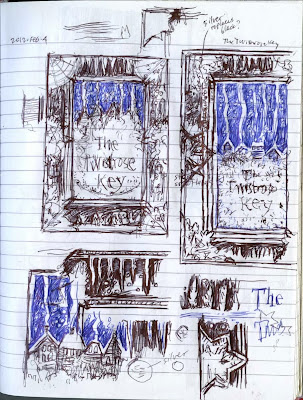 2012-Feb-4
Silver
replaces
black
The Twistrose Key
The
Twistrose
Key
The
Twistrose
Key
Silver
The
Tw